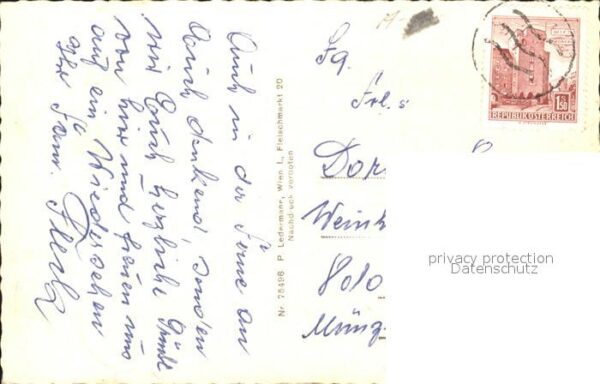 Auch in der Ferne an
Euch denkend, senden
wir Euch herzliche Grüße
von hier und freuen uns
auf ein Wiedersehen
Ihre Fam.
Nr. 75498 P. Ledermann, Wien I., Fleischmarkt 20
Nachdruck verboten
Fa.
Frl. s
Dor
Wein
8010
Münz
1.50
REPUBLIK ÖSTERREICH
privacy protection
Datenschutz